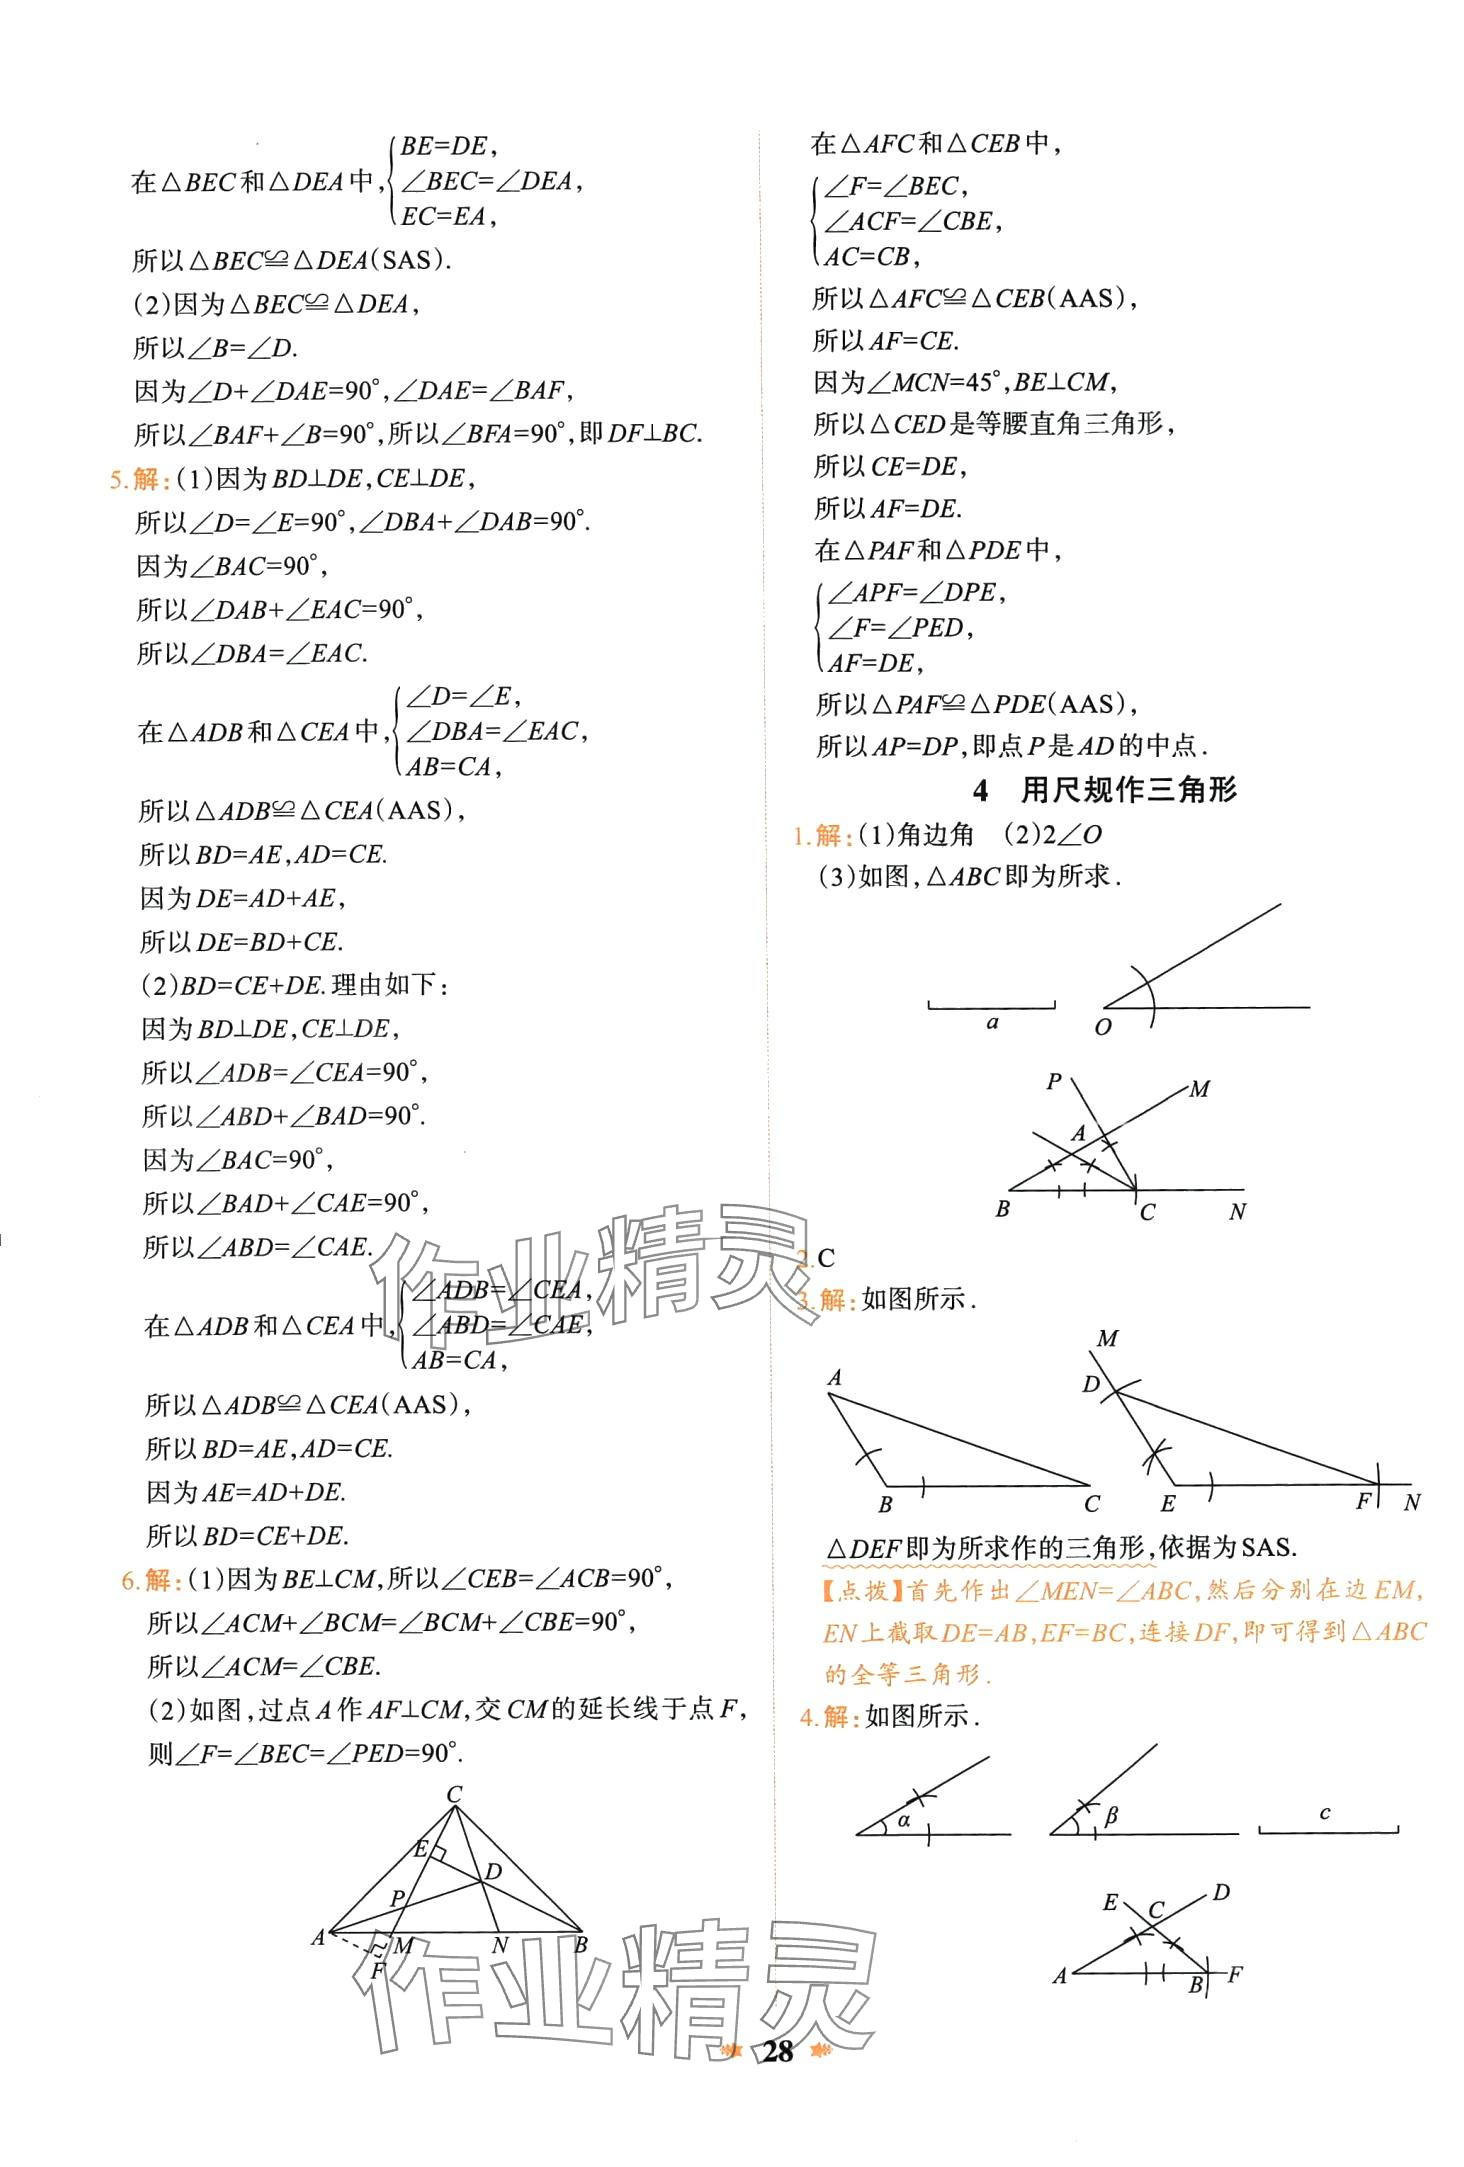 在△BEC和△DEA中,
BE=DE,
∠BEC=∠DEA,
EC=EA,
所以△BEC≌△DEA(SAS).
(2)因为△BEC≌△DEA,
所以∠B=∠D.
因为∠D+∠DAE=90°,∠DAE=∠BAF,
所以∠BAF+∠B=90°,所以∠BFA=90°,即DF⊥BC.
5.解:(1)因为BD⊥DE,CE⊥DE,
所以∠D=∠E=90°,∠DBA+∠DAB=90°.
因为∠BAC=90°,
所以∠DAB+∠EAC=90°,
所以∠DBA=∠EAC.
在△ADB和△CEA中,
∠D=∠E,
∠DBA=∠EAC,
AB=CA,
所以△ADB≌△CEA(AAS),
所以BD=AE,AD=CE.
因为DE=AD+AE,
所以DE=BD+CE.
(2)BD=CE+DE.理由如下:
因为BD⊥DE,CE⊥DE,
所以∠ADB=∠CEA=90°,
所以∠ABD+∠BAD=90°.
因为∠BAC=90°,
所以∠BAD+∠CAE=90°,
所以∠ABD=∠CAE.
在△ADB和△CEA中,
∠ADB=∠CEA,
∠ABD=∠CAE,
AB=CA,
所以△ADB≌△CEA(AAS),
所以BD=AE,AD=CE.
因为AE=AD+DE.
所以BD=CE+DE.
6.解:(1)因为BE⊥CM,所以∠CEB=∠ACB=90°,
所以∠ACM+∠BCM=∠BCM+∠CBE=90°,
所以∠ACM=∠CBE.
(2)如图,过点A作AF⊥CM,交CM的延长线于点F,
则∠F=∠BEC=∠PED=90°.
C
E
D
P
A
M
N
B
F
在△AFC和△CEB中,
∠F=∠BEC,
∠ACF=∠CBE,
AC=CB,
所以△AFC≌△CEB(AAS),
所以AF=CE.
因为∠MCN=45°,BE⊥CM,
所以△CED是等腰直角三角形,
所以CE=DE,
所以AF=DE.
在△PAF和△PDE中,
∠APF=∠DPE,
∠F=∠PED,
AF=DE,
所以△PAF≌△PDE(AAS),
所以AP=DP,即点P是AD的中点.
4 用尺规作三角形
1.解:(1)角边角 (2)2∠O
(3)如图,△ABC即为所求.
a
O
P
M
A
B
C
N
2.C
3.解:如图所示.
A
B
C
M
D
E
F
N
△DEF即为所求作的三角形,依据为SAS.
【点拨】首先作出∠MEN=∠ABC,然后分别在边EM,
EN上截取DE=AB,EF=BC,连接DF,即可得到△ABC
的全等三角形.
4.解:如图所示.
α
β
c
E
C
D
A
B
F
作业精灵
作业精灵
28